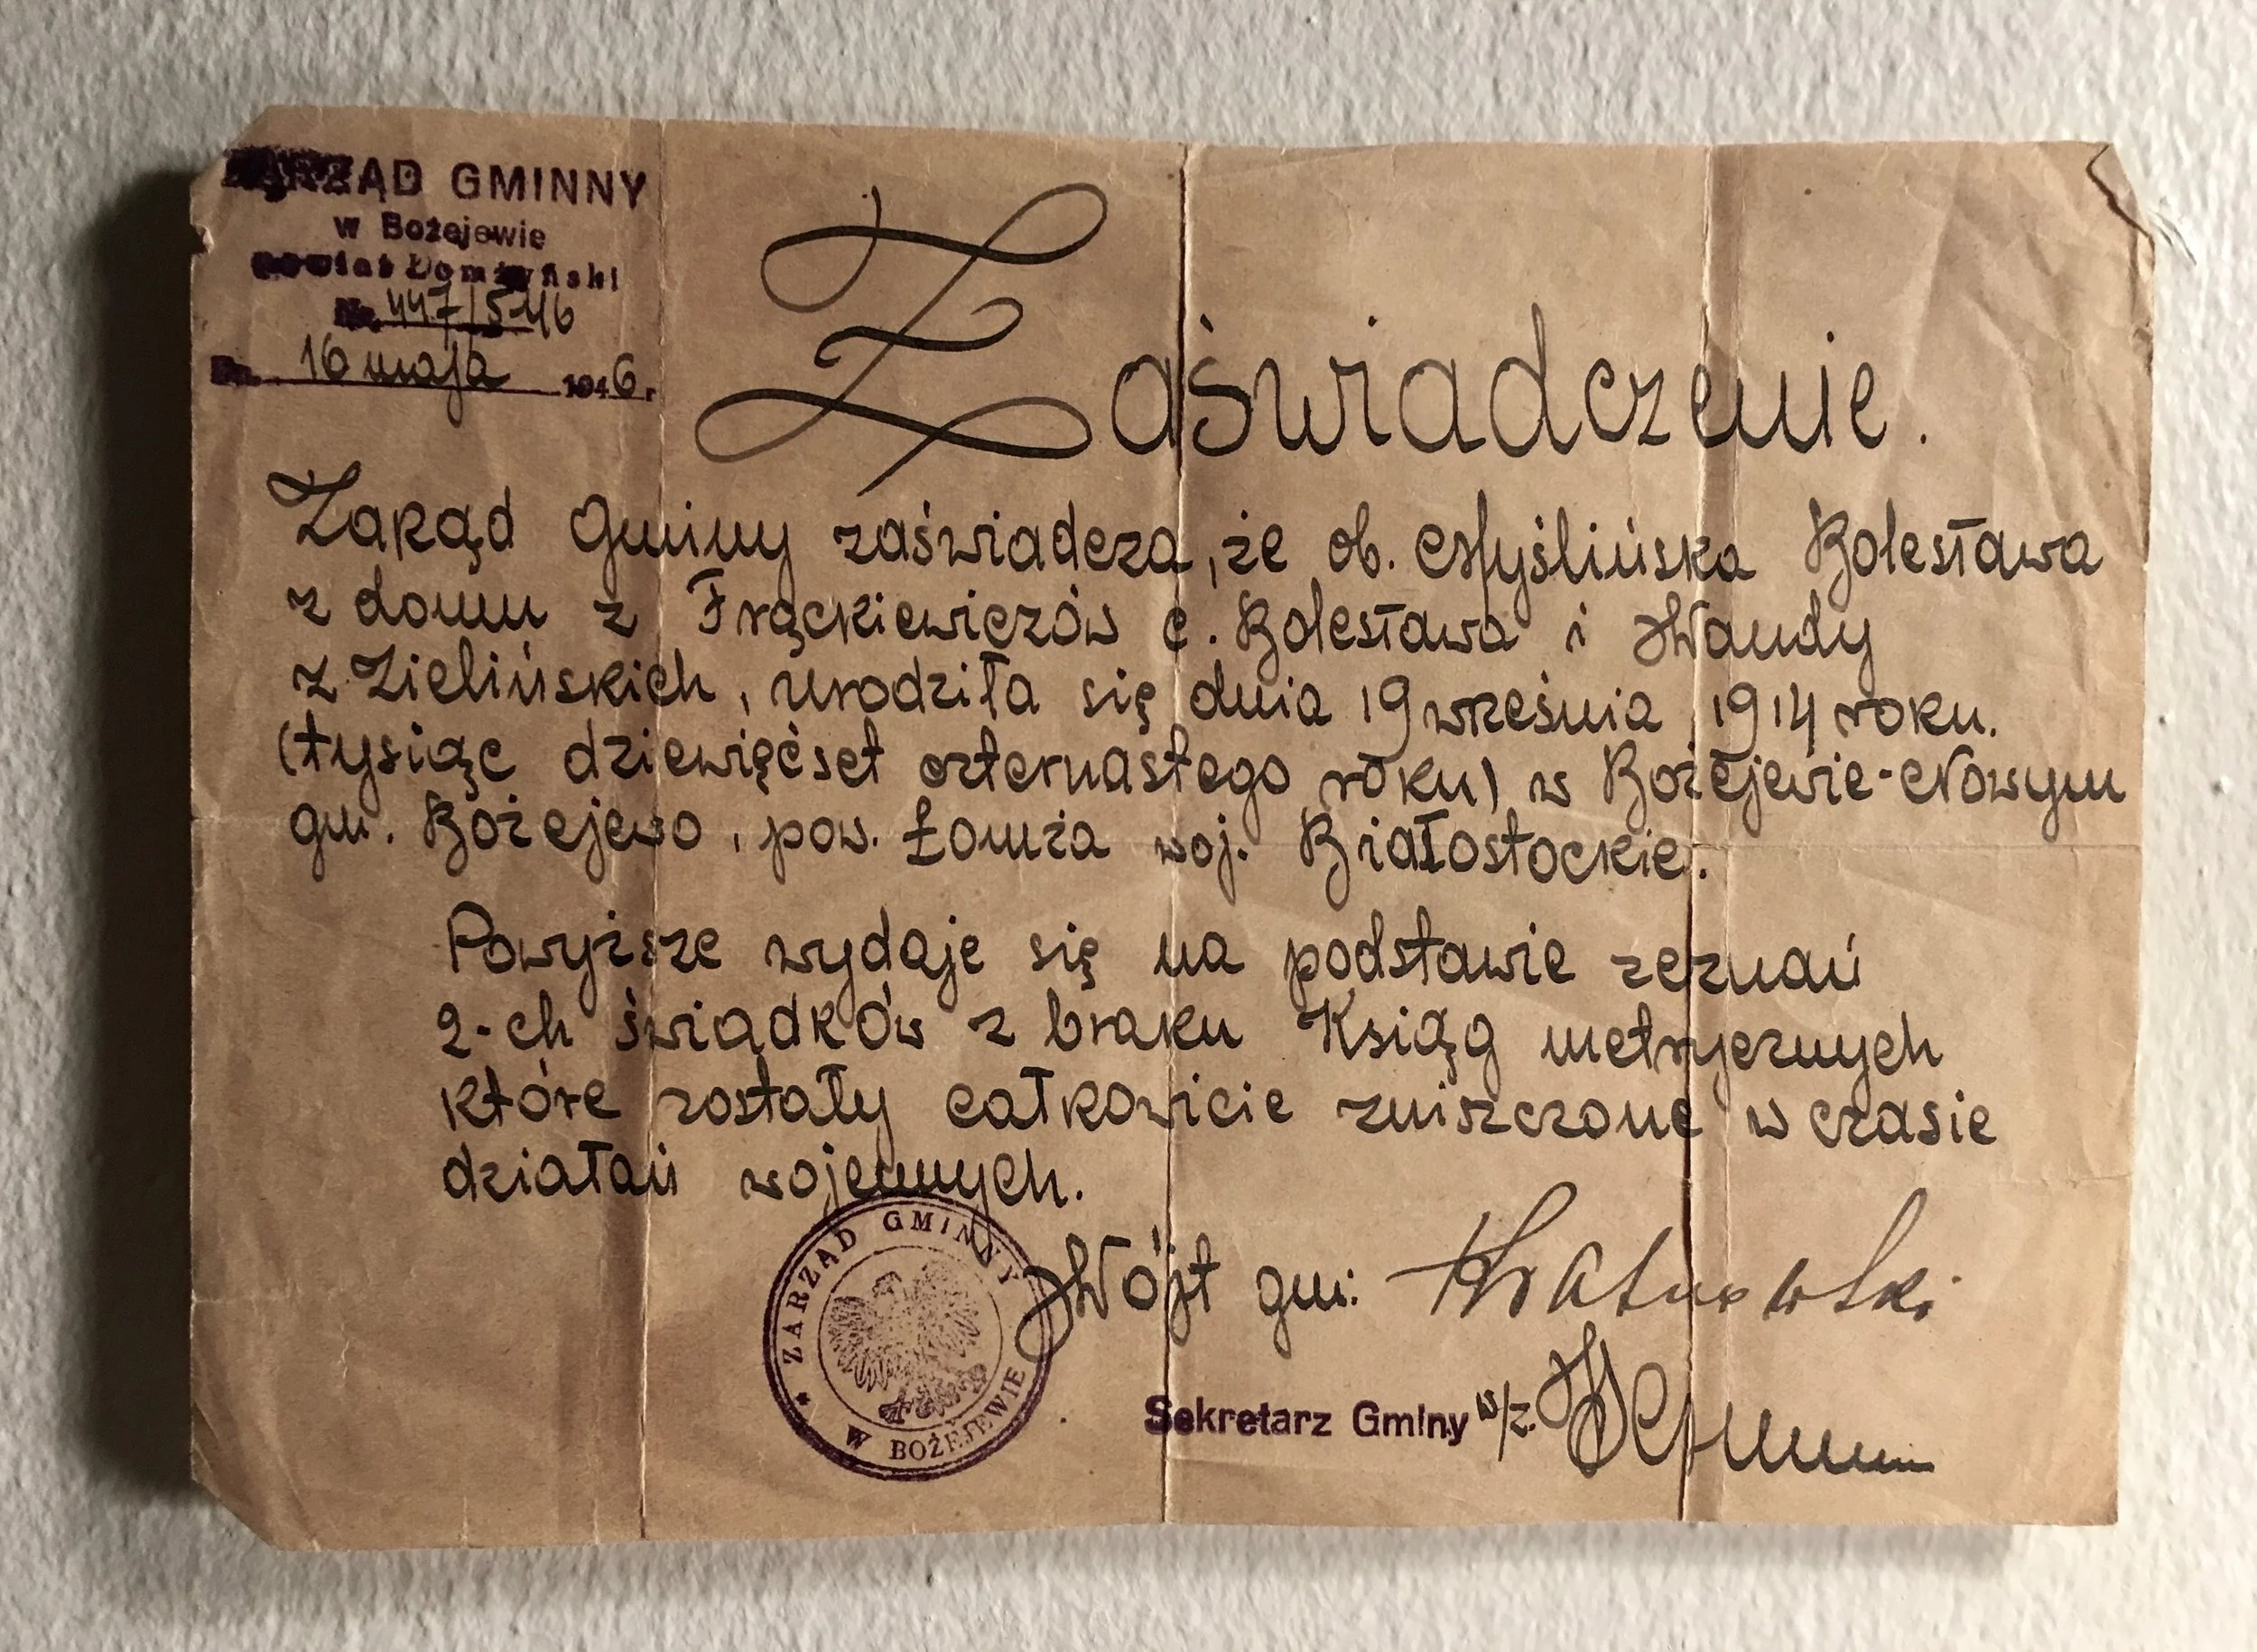 ZARZĄD GMINNY
w Bożejewie
Powiat Łomżyński
Nr. 447/5-46
Dn. 16 maja 1946 r.
Zaświadczenie.
Zarząd Gminy zaświadcza, że ob. Myślińska Bolesława
z domu z Frąckiewiczów c. Bolesława i Wandy
z Zielińskich, urodziła się dnia 19 września 1914 roku.
(tysiąc dziewięćset czternastego roku) w Bożejewie-Nowym
gm. Bożejewo, pow. Łomża woj. Białostockie.
Powyższe wydaje się na podstawie zeznań
2-ch świadków z braku Ksiąg metrycznych
które zostały całkowicie zniszczone w czasie
działań wojennych.
ZARZĄD GMINNY
W BOŻEJEWIE
Wójt gm:
Sekretarz Gminy w/z.